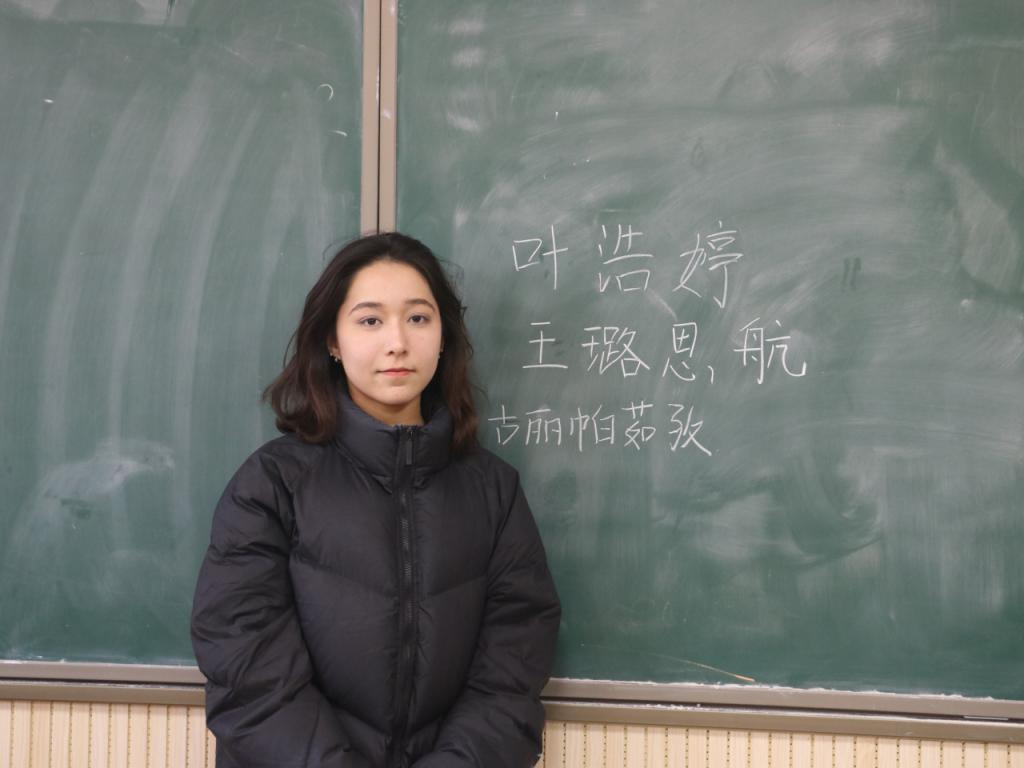 叶浩婷
王璐思航
古丽帕茹孜